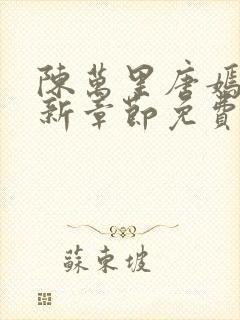 陳萬里唐嫣
新章節免費
蘇東坡